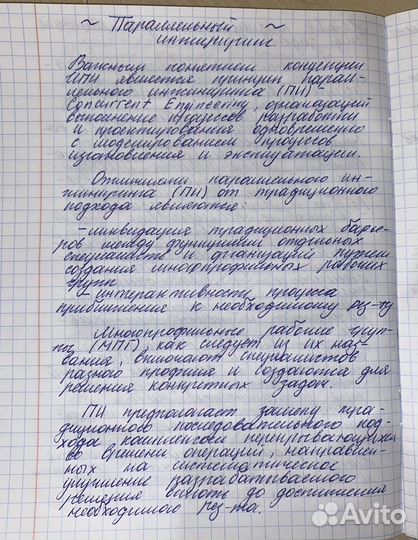 ~ Параллельный ~
инжиниринг.
Важным понятием концепции
ИПИ является принцип парал-
лельного инжиниринга (ПИ) -
Concurrent Engineering, организаций
выполнение процессов разработки
и проектирования одновременно
с моделированием процессов
изготовления и эксплуатации.
Отличиями параллельного ин-
жиниринга (ПИ) от традиционного
подхода являются:
-ликвидация традиционных барье-
ров между функциями отдельных
специалистов и организаций путем
создания многопрофильных рабочих
групп
- интерактивность процесса
приближения к необходимому рез-ту
Многопрофильные рабочие груп-
пы (МПГ), как следует из их наз-
вания, включают специалистов
разного профиля и создаются для
решения конкретных задач.
ПИ предполагает замену тра-
диционного последовательного под-
хода комплексом перекрывающихся
во времени операций, направлен-
ных на систематическое
улучшение разрабатываемого
решения вплоть до достижения
необходимого рез-та.
Avito